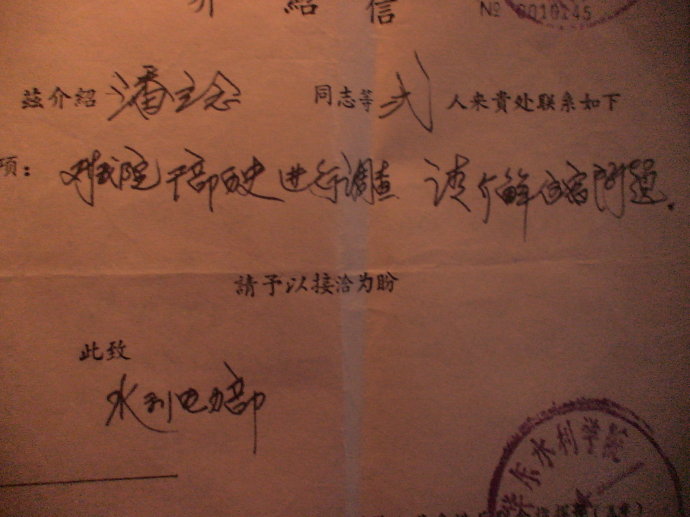 介紹信
№ 0010245
茲介紹潘立念同志等弍人来貴处联系如下
项：对我院干部历史进行调查 请介解住宿问题.
請予以接洽为盼
此致
水利电力部
华东水利学院